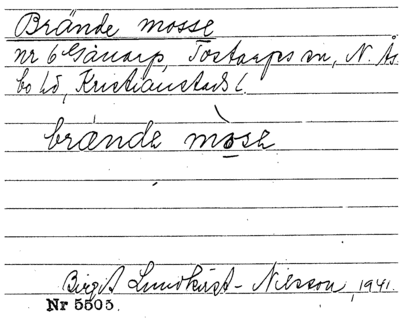 Brände mosse
nr 6 Gånarp, Tostarps sn, N. Ås
bo hd, Kristianstads l.
brände mòse
Birgit Lundkvist-Nilsson, 1941.
Nr 5505.